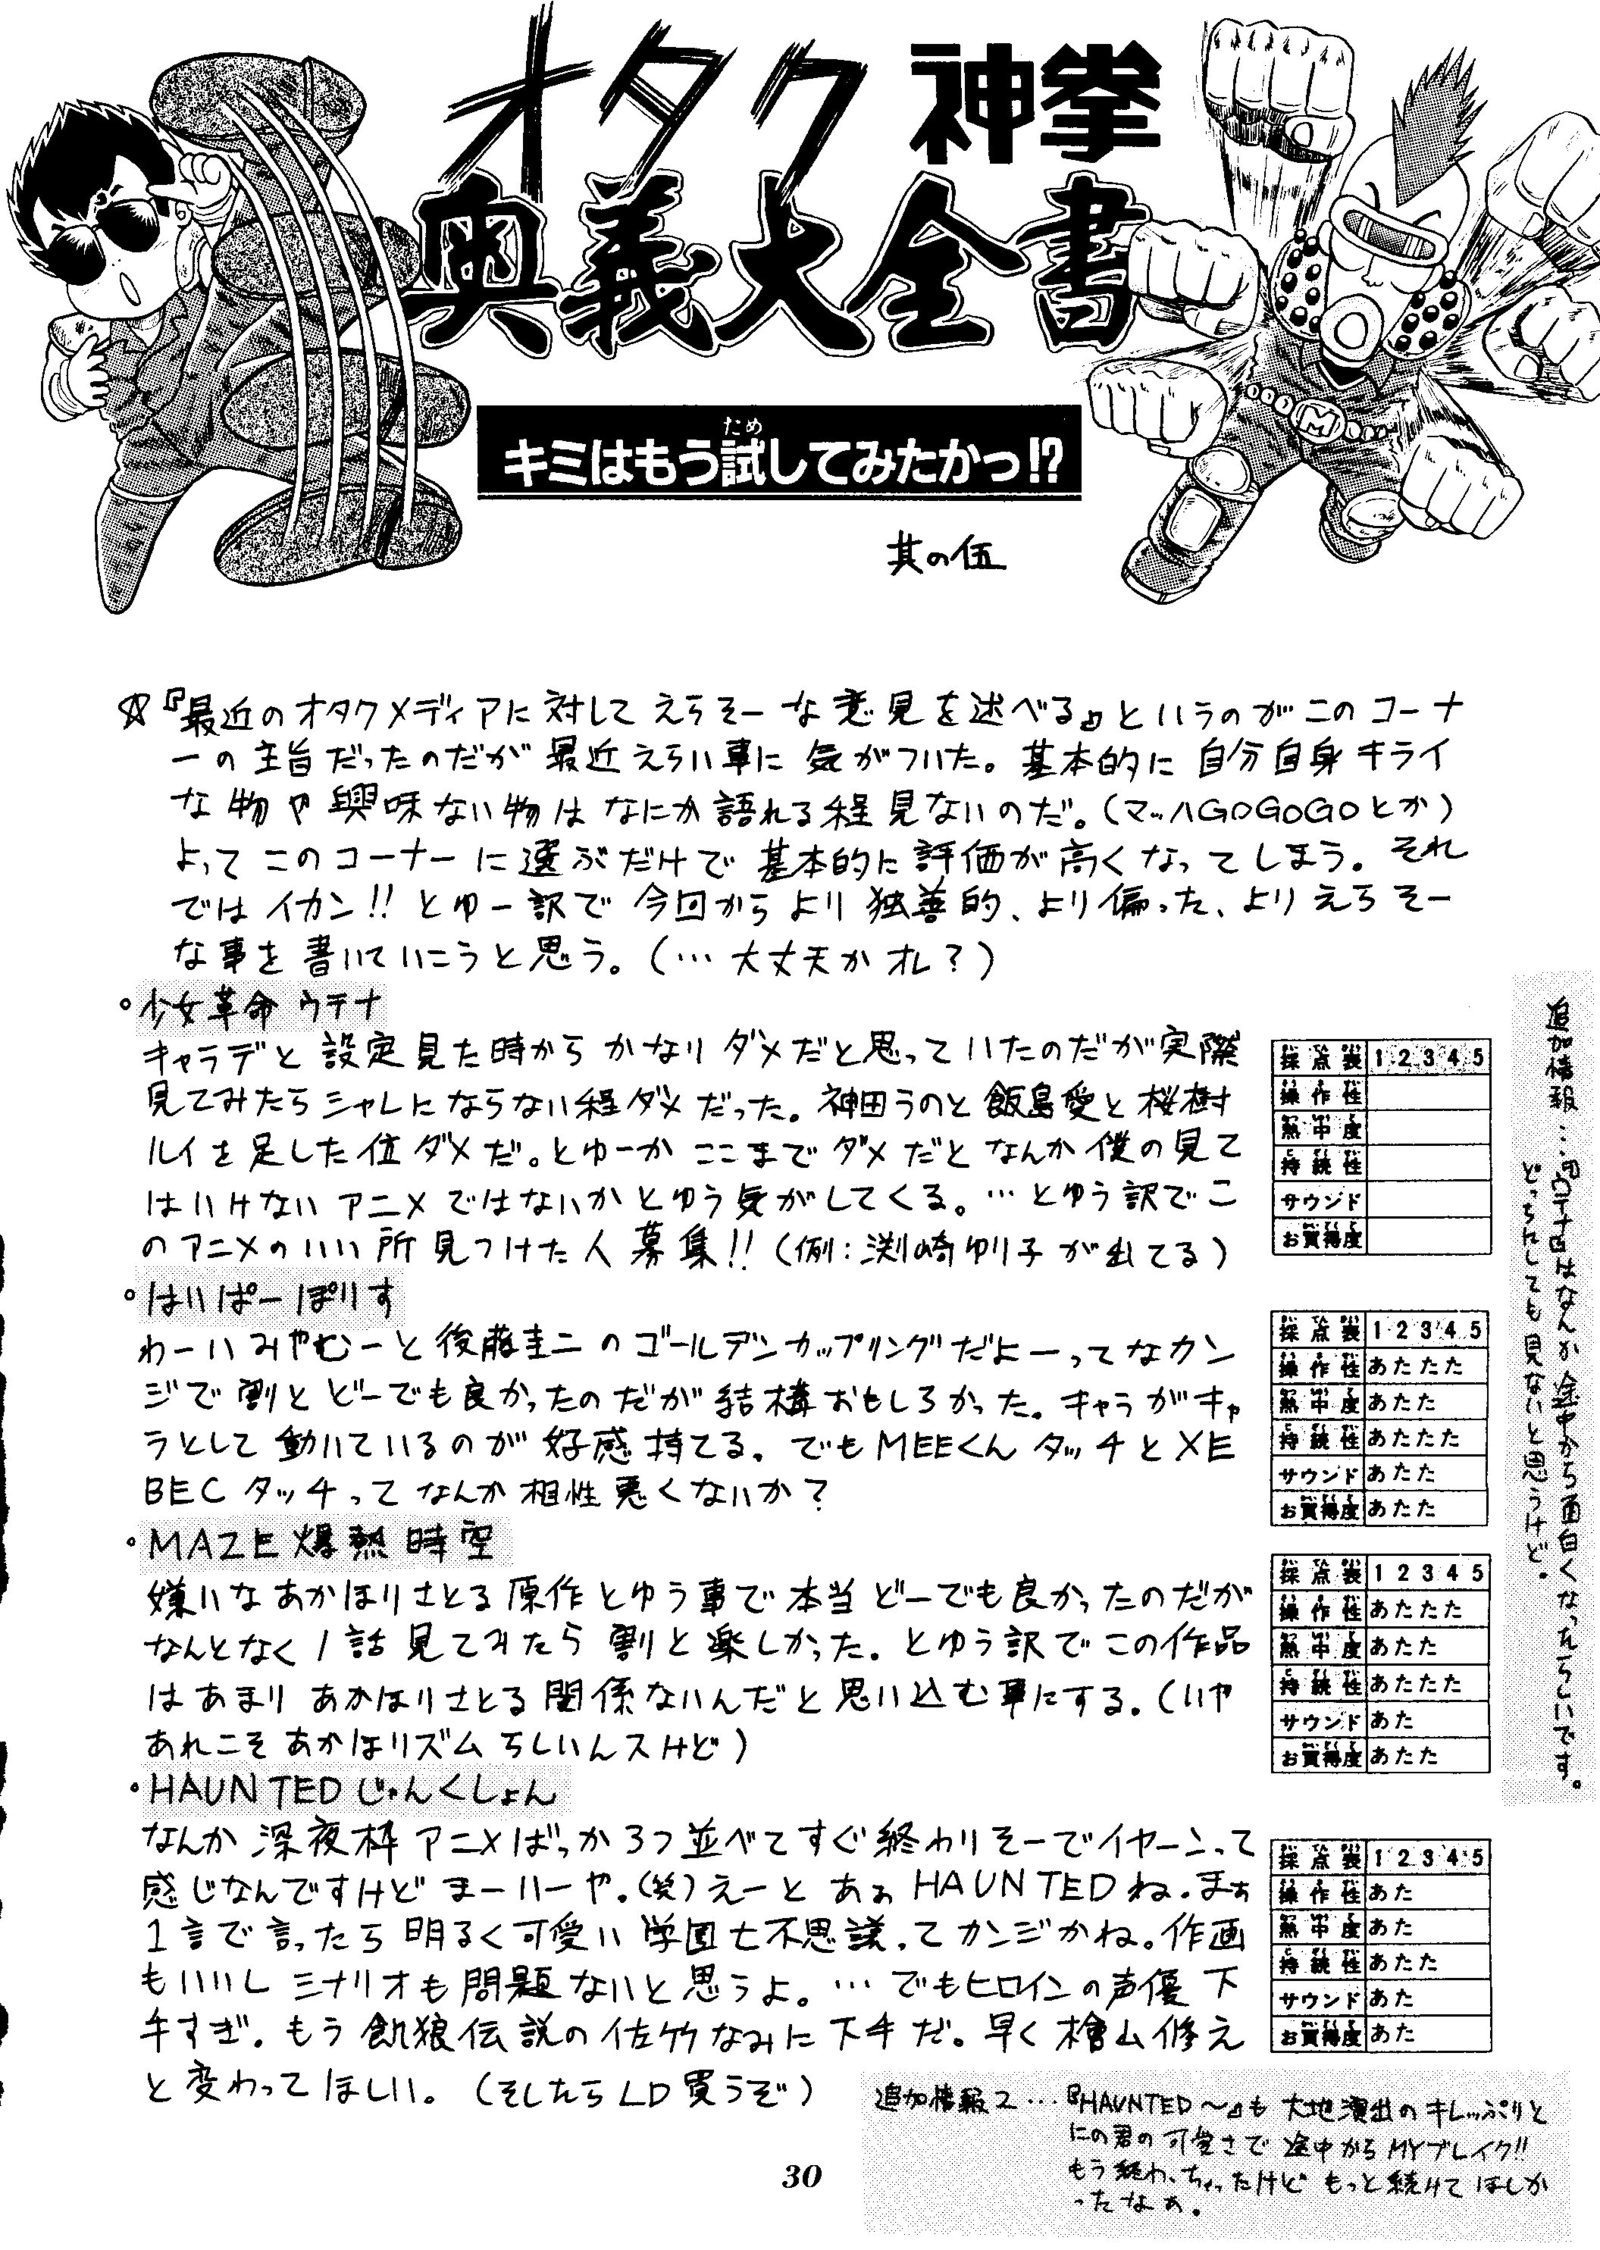 オタク神拳
奥義大全書
キミはもう試してみたかっ!?
ため
其の伍
☆『最近のオタクメディアに対してえらそーな意見を述べる』というのがこのコーナ
ーの主旨だったのだが最近えらい事に気がついた。基本的に自分自身キライ
な物や興味ない物はなにか語れる程見ないのだ。(マッハGOGOGOとか)
よってこのコーナーに選ぶだけで基本的に評価が高くなってしまう。それ
ではイカン!!とゆー訳で今回からより独善的、より偏った、よりえらそー
な事を書いていこうと思う。(…大丈夫かオレ?)
・少女革命ウテナ
キャラデと設定見た時からかなりダメだと思っていたのだが実際
見てみたらシャレにならない程ダメだった。神田うのと飯島愛と桜樹
ルイを足した位ダメだ。とゆーかここまでダメだとなんか僕の見て
はいけないアニメではないかとゆう気がしてくる。…とゆう訳でこ
のアニメのいい所見つけた人募集!!(例:渕崎ゆり子が出てる)
採点表 1 2 3 4 5
操作性
熱中度
持続性
サウンド
お買得度
・はいぱーぽりす
わーいみやむーと後藤圭二のゴールデンカップリングだよーってなカン
ジで割とどーでも良かったのだが結構おもしろかった。キャラがキャ
ラとして動いているのが好感持てる。でもMEEくんタッチとXE
BECタッチってなんか相性悪くないか?
採点表 1 2 3 4 5
操作性 あたたた
熱中度 あたた
持続性 あたたた
サウンド あたた
お買得度 あたた
・MAZE爆熱時空
嫌いなあかほりさとる原作とゆう事で本当どーでも良かったのだが
なんとなく1話見てみたら割と楽しかった。とゆう訳でこの作品
はあまりあかほりさとる関係ないんだと思い込む事にする。(いや
あれこそあかほりズムらしいんスけど)
採点表 1 2 3 4 5
操作性 あたたた
熱中度 あたた
持続性 あたたた
サウンド あた
お買得度 あたた
・HAUNTEDじゃんくしょん
なんか深夜枠アニメばっか3つ並べてすぐ終わりそーでイヤーンって
感じなんですけどまーいーや。(笑)えーとあぁHAUNTEDね。まぁ
1言で言ったら明るく可愛い学園七不思議、てカンジかね。作画
もいいしシナリオも問題ないと思うよ。…でもヒロインの声優下
手すぎ。もう餓狼伝説の佐竹なみに下手だ。早く檜山修え
と変わってほしい。(そしたらLD買うぞ)
採点表 1 2 3 4 5
操作性 あた
熱中度 あた
持続性 あたた
サウンド あた
お買得度 あた
追加情報…『ウテナ』はなんか途中から面白くなったらしいです。
どっちにしても見ないと思うけど。
追加情報2…『HAUNTED~』も大地演出のキレっぷりと
にの君の可愛さで途中からMYブレイク!!
もう終わっちゃったけどもっと続けてほしか
ったなぁ。
30